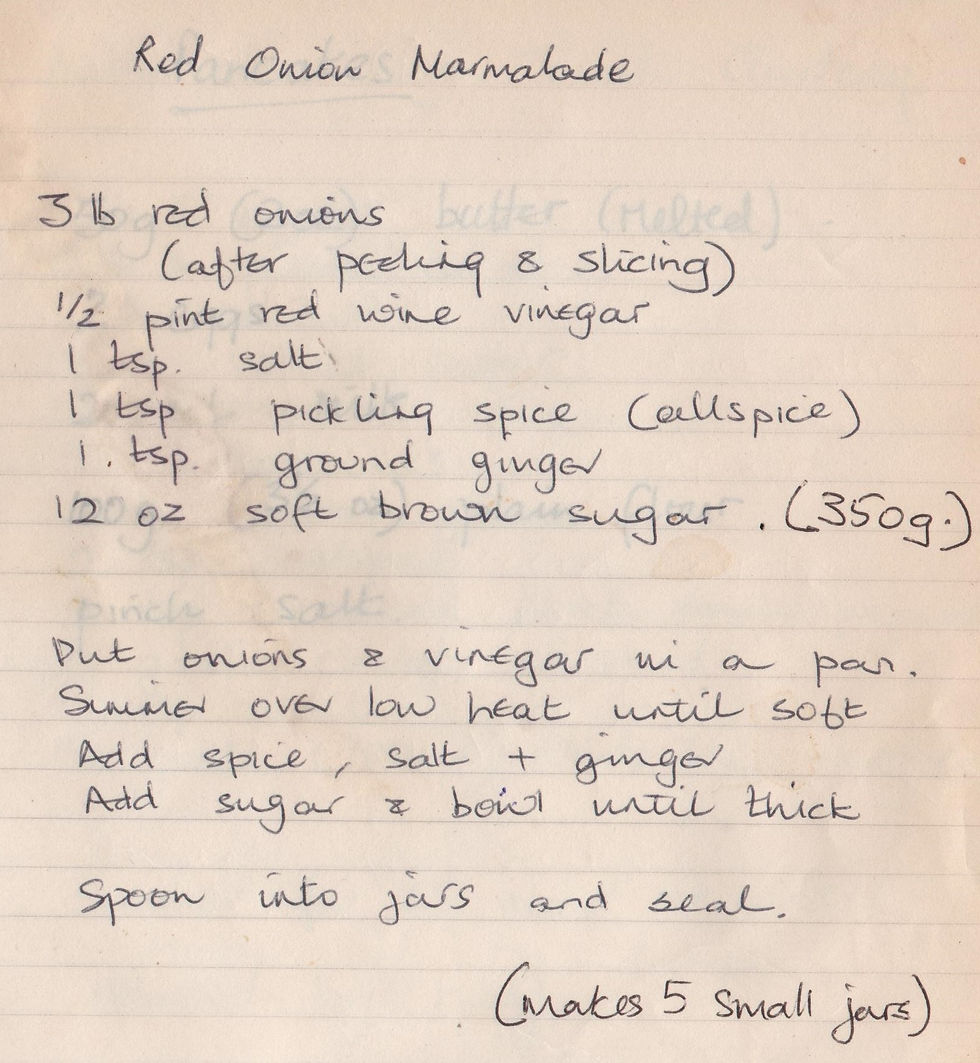 Red Onion Marmalade
3 lb red onions
(after peeling & slicing)
1/2 pint red wine vinegar
1 tsp. salt
1 tsp pickling spice (allspice)
1. tsp. ground ginger
12 oz soft brown sugar. (350g.)
Put onions & vinegar in a pan.
Simmer over low heat until soft
Add spice, salt + ginger
Add sugar & boil until thick
Spoon into jars and seal.
(makes 5 small jars)